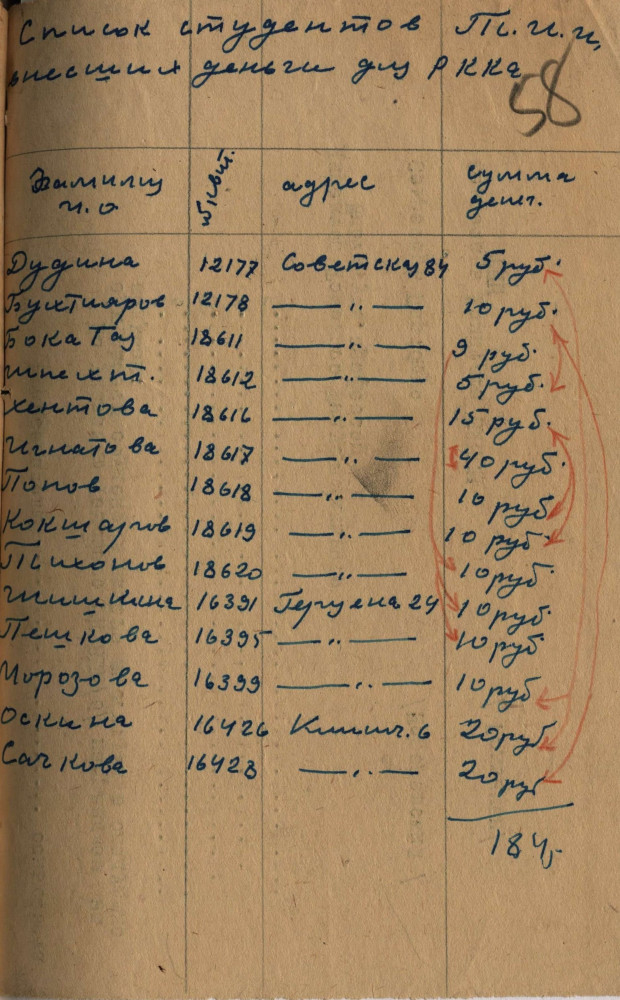 Список студентов Т.И.И,
внесших деньги для РККА
58
Фамилия и.о. № квит. адрес сумма денег.
Дудина 12177 Советская 84 5 руб.
Бухтияров 12178 —„— 10 руб.
Бока Таз 18611 —„— 9 руб.
Шпехт. 18612 —„— 5 руб.
Хентова 18616 —„— 15 руб.
Игнатова 18617 —„— 40 руб.
Попов 18618 —„— 10 руб.
Кокшаров 18619 —„— 10 руб.
Тихонов 18620 —„— 10 руб.
Шишкина 16391 Герцена 24 10 руб.
Пешкова 16395 —„— 10 руб.
Морозова 16399 —„— 10 руб
Оскина 16426 6 20 руб
Сачкова 16428 —„— 20 руб
184,